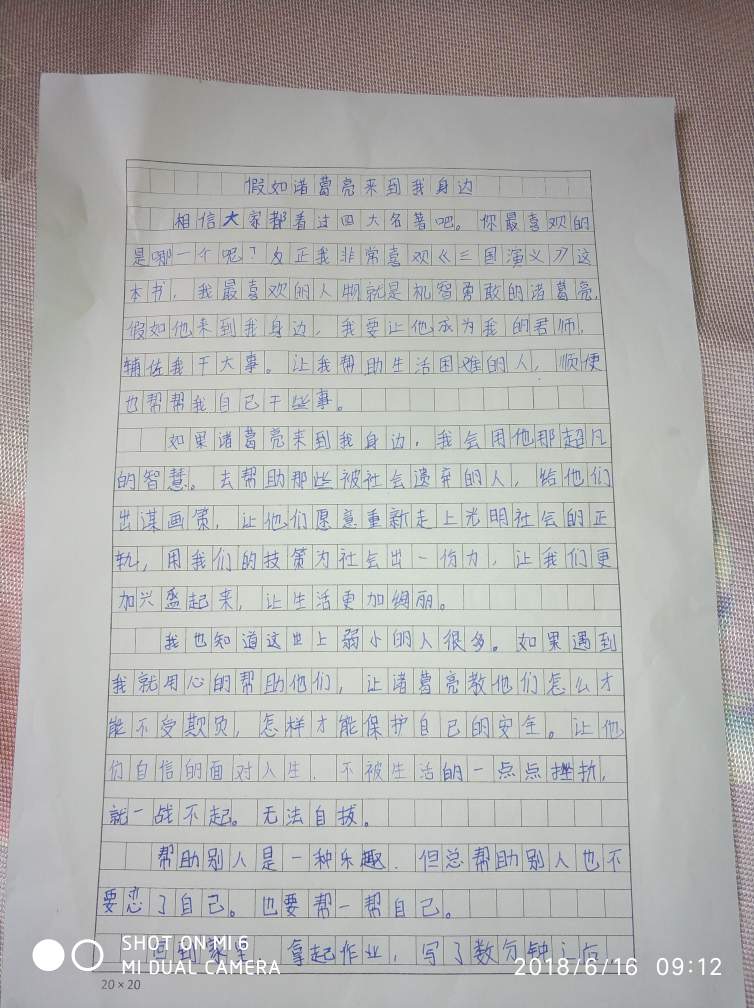 假如诸葛亮来到我身边
相信大家都看过四大名著吧。你最喜欢的
是哪一个呢？反正我非常喜欢《三国演义》这
本书，我最喜欢的人物就是机智勇敢的诸葛亮，
假如他来到我身边，我要让他成为我的君师，
辅佐我干大事。让我帮助生活困难的人，顺便
也帮帮我自己干些事。
如果诸葛亮来到我身边，我会用他那超凡
的智慧。去帮助那些被社会遗弃的人，给他们
出谋画策，让他们愿意重新走上光明社会的正
轨，用我们的技策为社会出一份力，让我们更
加兴盛起来，让生活更加绸丽。
我也知道这世上弱小的人很多。如果遇到
我就用心的帮助他们，让诸葛亮教他们怎么才
能不受欺负，怎样才能保护自己的安全。让他
们自信的面对人生，不被生活的一点点挫折，
就一战不起。无法自拔。
帮助别人是一种乐趣，但总帮助别人也不
要忘了自己。也要帮一帮自己。
回到家里，拿起作业，写了数分钟之后，
SHOT ON MI 6
MI DUAL CAMERA
2018/6/16 09:12
20×20